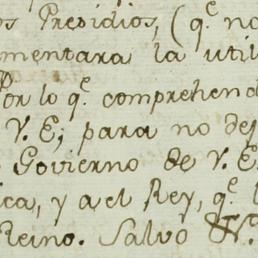 os Presidios, (q.e no
mentara la util
Por lo q.e comprehend
V. E; para no dej
Govierno de V. E
ica, y a el Rey, q.e l
Reino. Salvo